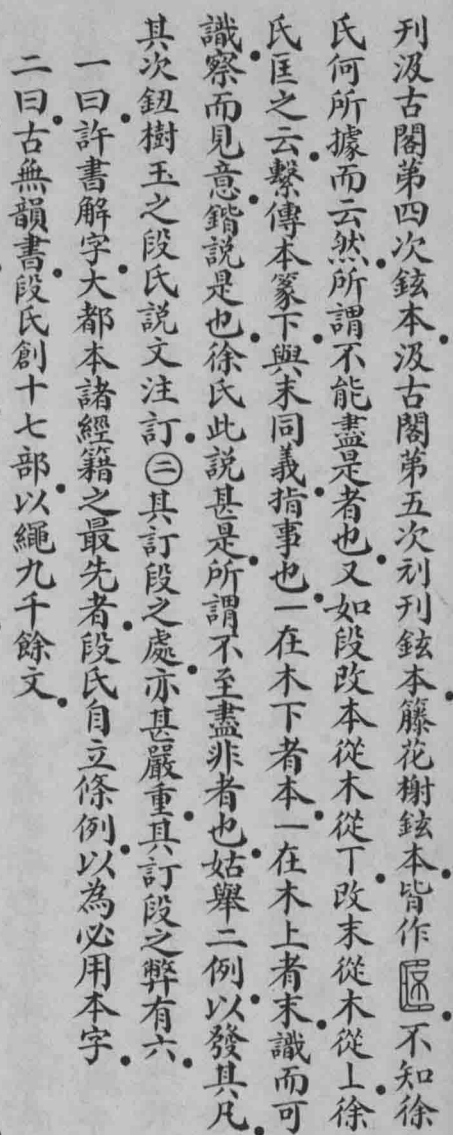 刋汲古閣第四次鉉本．汲古閣第五次剜刋鉉本．籐花榭鉉本．皆作．不知徐
氏何所據而云然．所謂不能盡是者也．又如段改本從木從丅．改末從木從丄．徐
氏匡之云．繫傳本篆下．與末同義．指事也．一在木下者本．一在木上者末．識而可
識．察而見意．鍇說是也．徐氏此說甚是．所謂不至盡非者也．姑舉二例．以發其凡．
其次鈕樹玉之段氏說文注訂．㊁其訂段之處．亦甚嚴重．其訂段之弊有六．
一曰．許書解字．大都本諸經籍之最先者．段氏自立條例．以為必用本字．
二曰．古無韻書．段氏創十七部．以繩九千餘文．